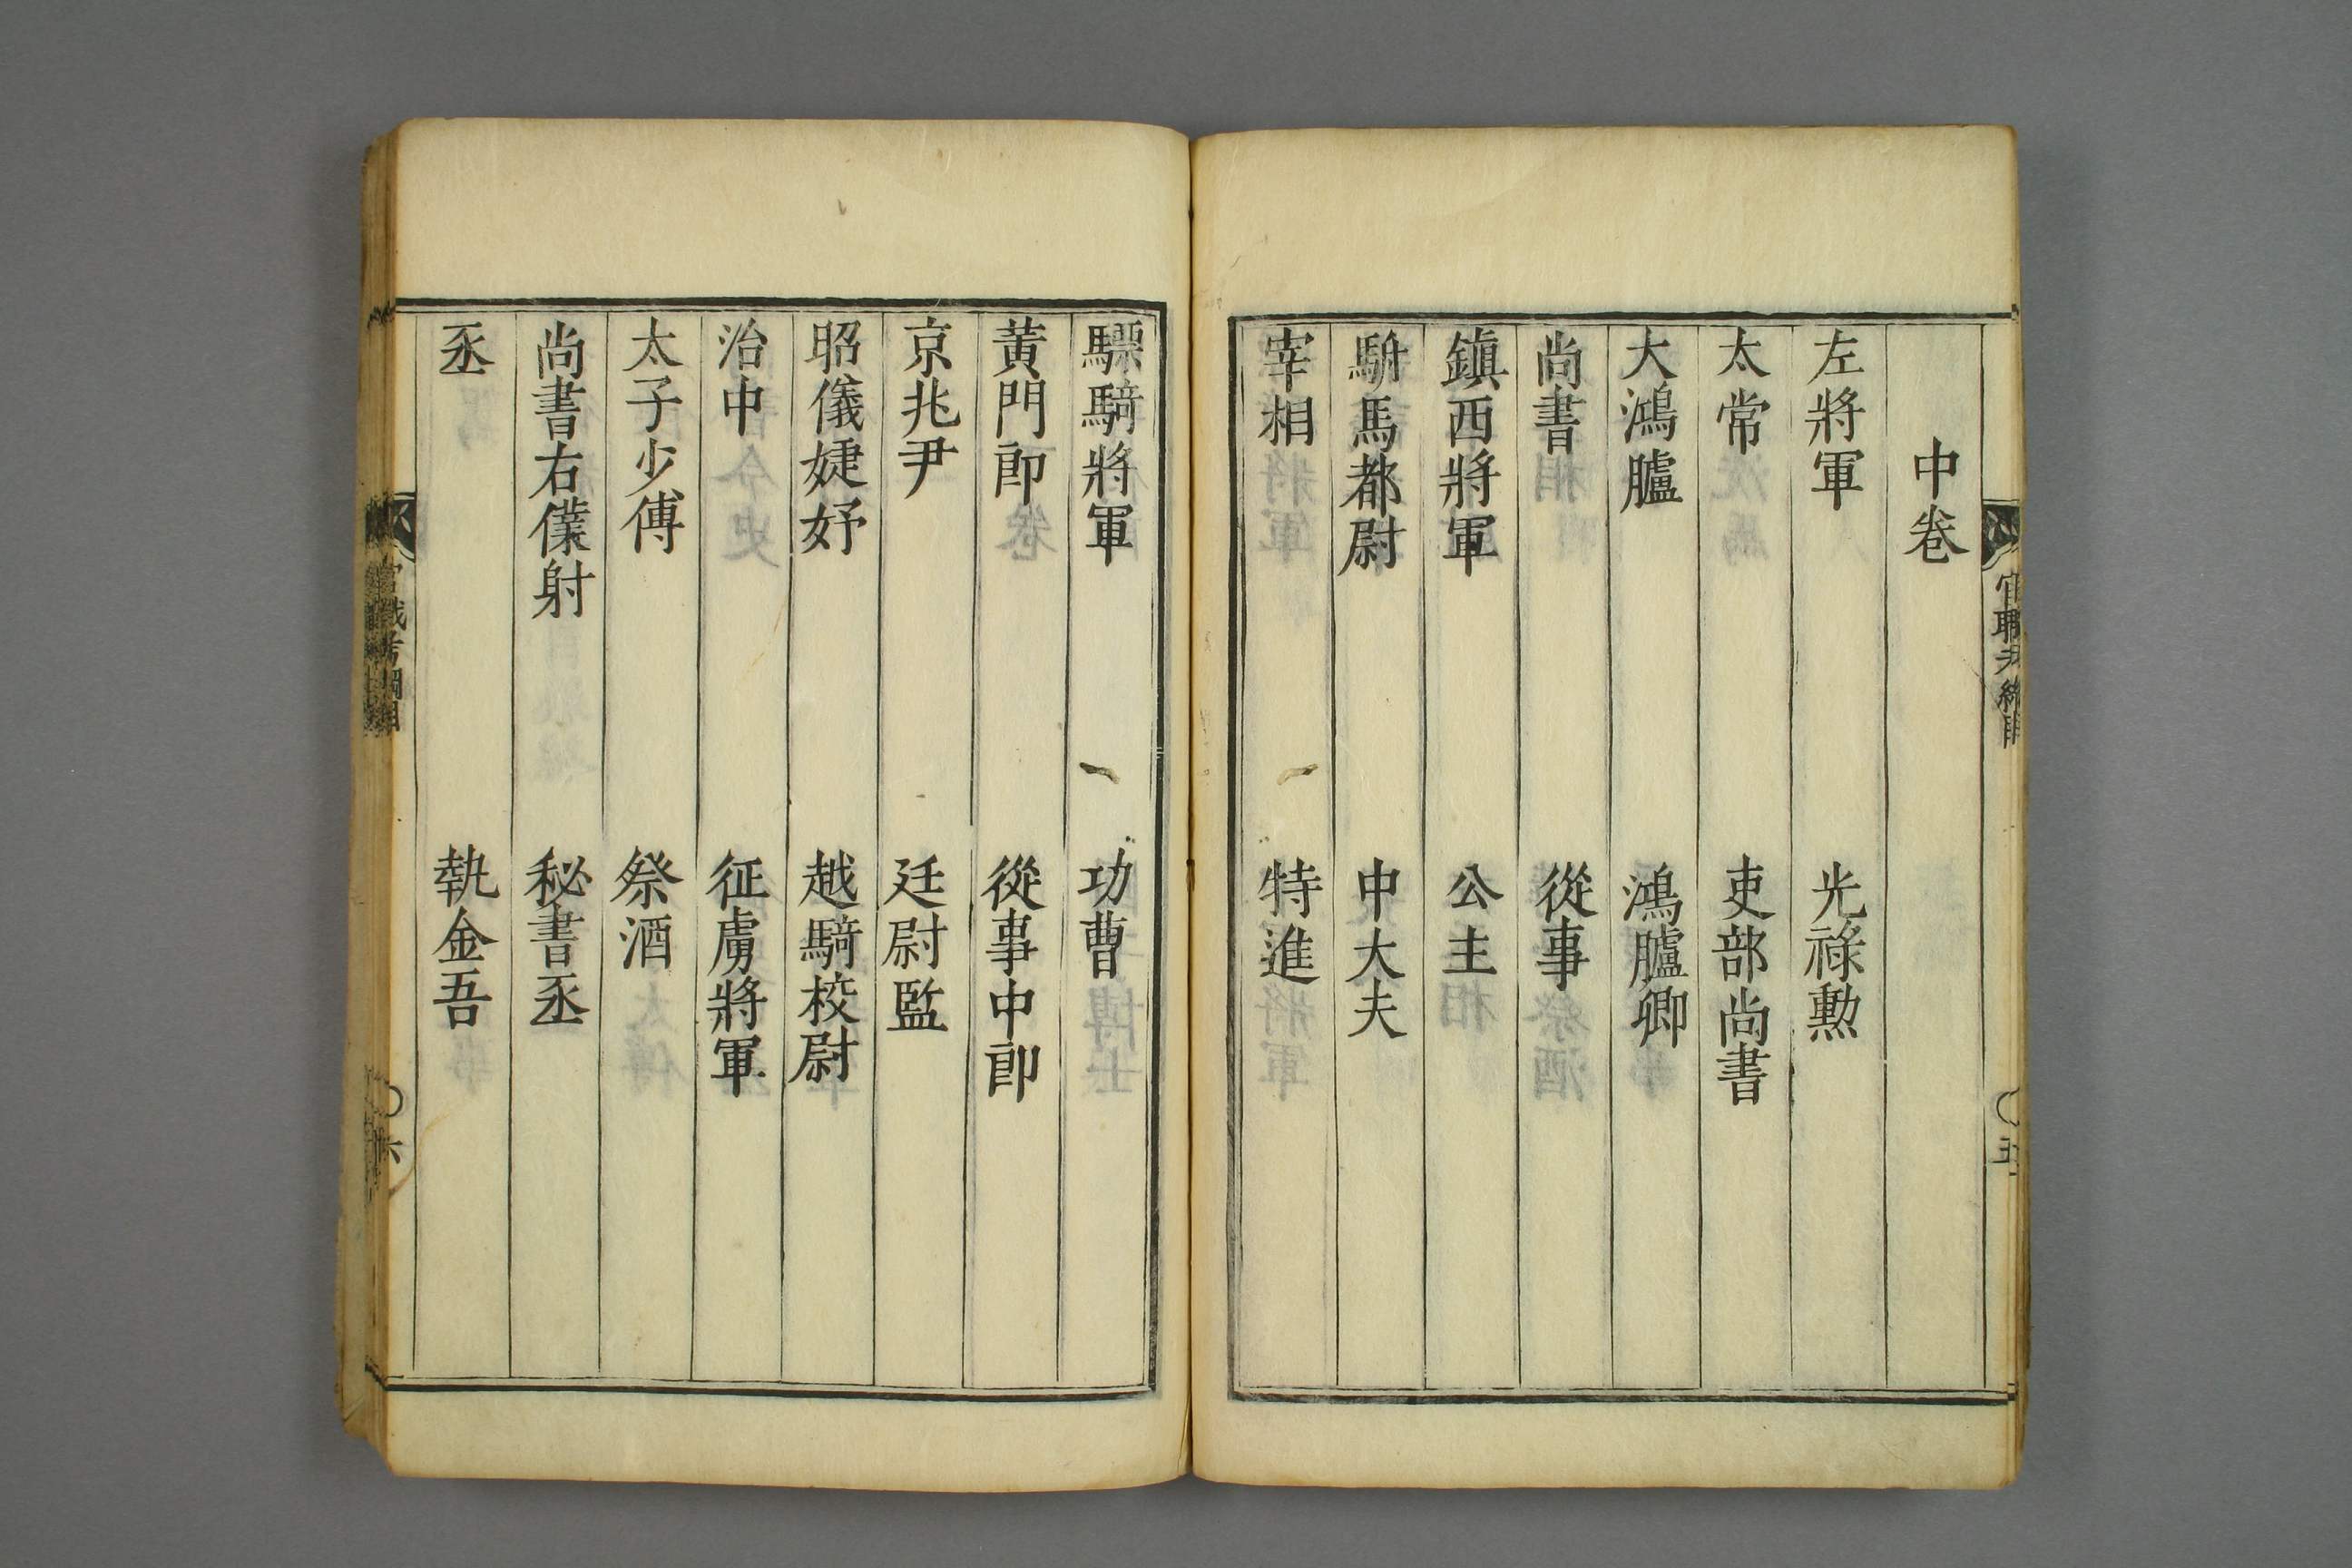 中卷
左將軍 光祿勲
太常 吏部尚書
大鴻臚 鴻臚卿
尚書 從事
鎮西將軍 公主
駙馬都尉 中大夫
宰相 特進
驃騎將軍 功曹
黃門郎 從事中郎
京兆尹 廷尉監
昭儀婕妤 越騎校尉
治中 征虜將軍
太子少傅 祭酒
尚書右僕射 秘書丞
丞 執金吾
官職考綱目
六